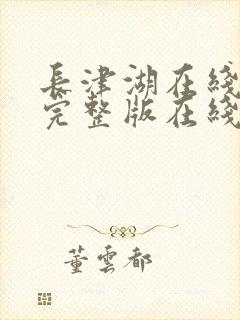 長津湖在綫
完整版在綫
董雲都